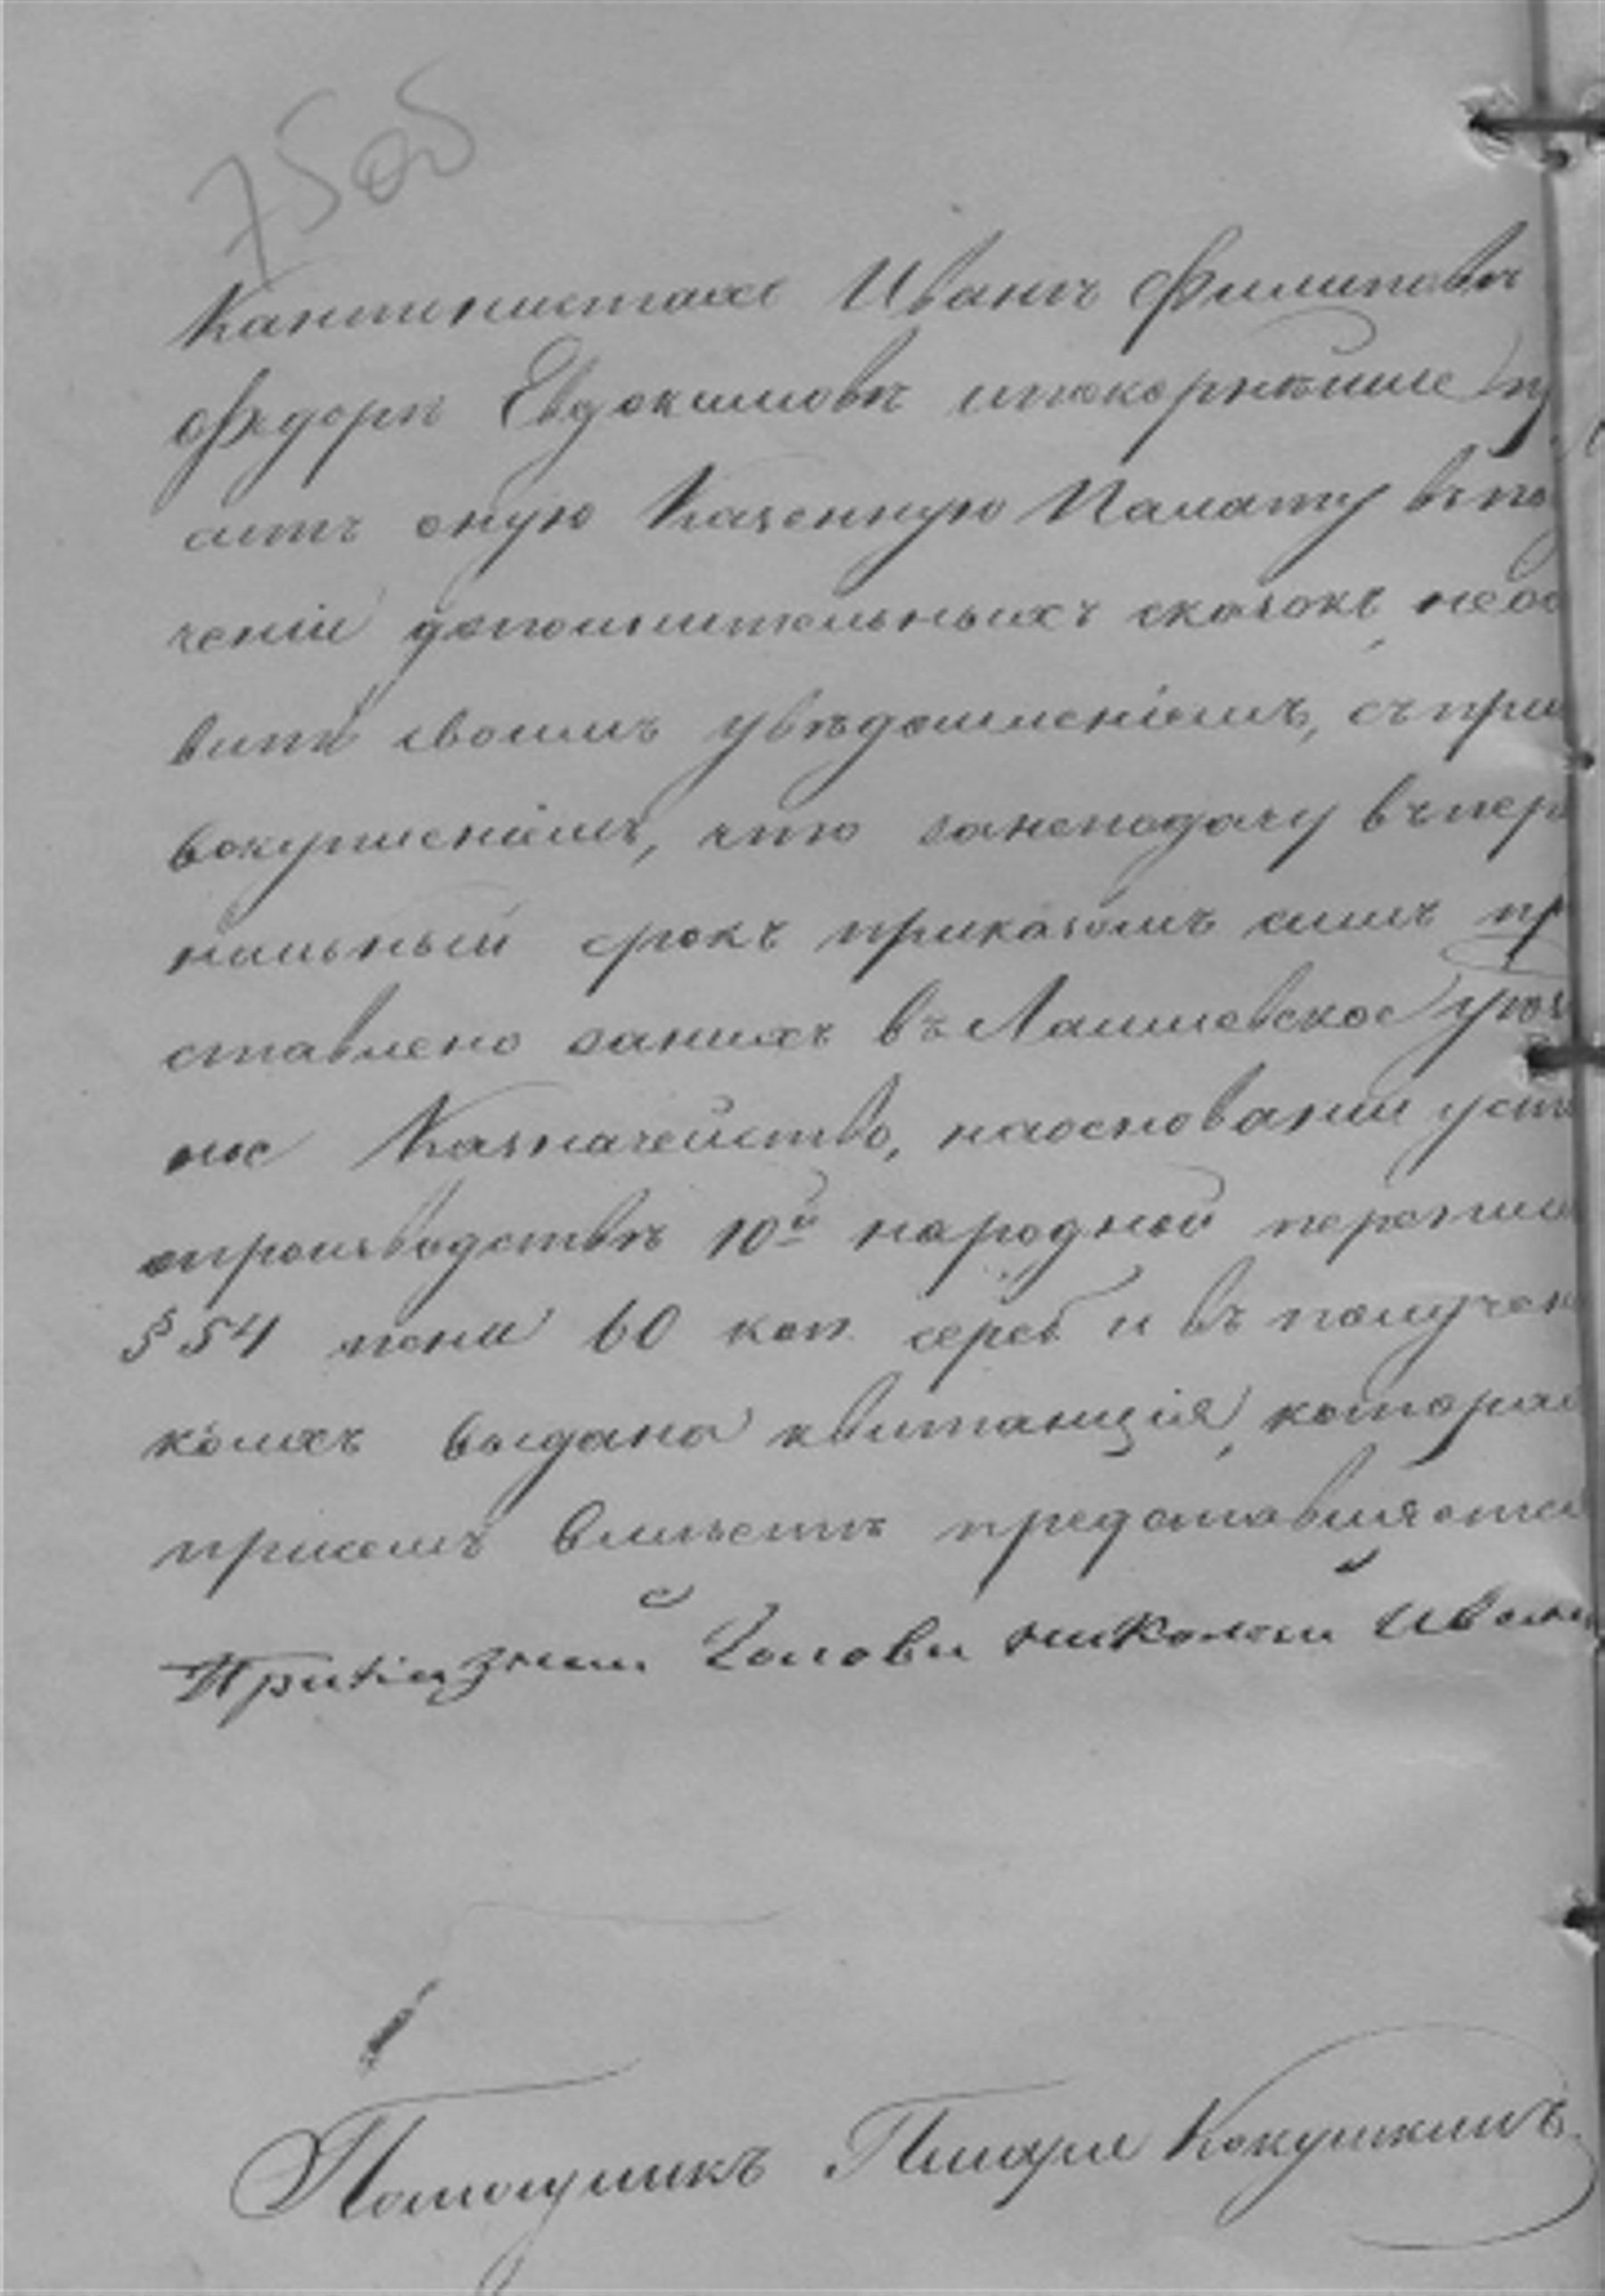 7505
Кантинистахъ Иванъ Филиповъ
Федоръ Евдокимовъ ипокорнѣише п
ситъ оную Казенную Палату въпо
ченіи дополнительныхъ сказокъ, неос
вить своимъ увѣдомленіемъ, съпри
вокупленіемъ, что занеподачу въпер
нальный срокъ приказомъ симъ пр
ставлено занихъ въ Лаишевское уѣзд
ное Казначейство, наосновании уста
опроизводствѣ 10й народной переписи
§ 54 пени 60 коп. сереб и въ получен
коихъ выдана квитанція, которая
присемъ вмѣстѣ представляется
Голови николай Ивано
Помощникъ Писаря Кокушкинъ